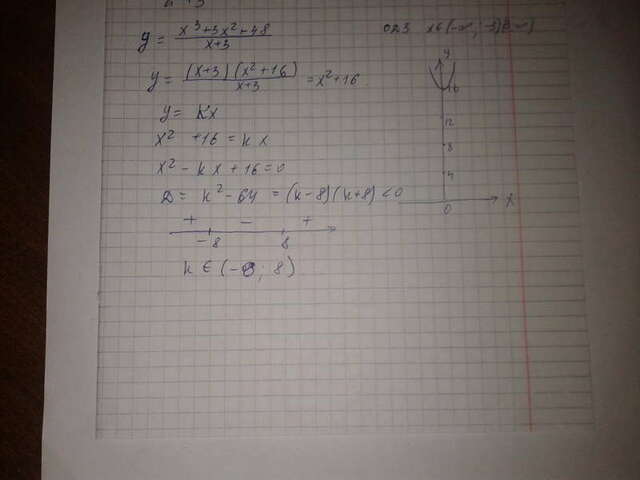 y = x³+3x²+48 / x+3
y = (x+3)(x²+16) / x+3 = x²+16
y = kx
x² +16 = kx
x² - kx +16 = 0
D = k² - 64 = (k-8)(k+8) < 0
+ - +
-8 8
k ∈ (-8; 8)
y
16
12
8
4
0
x